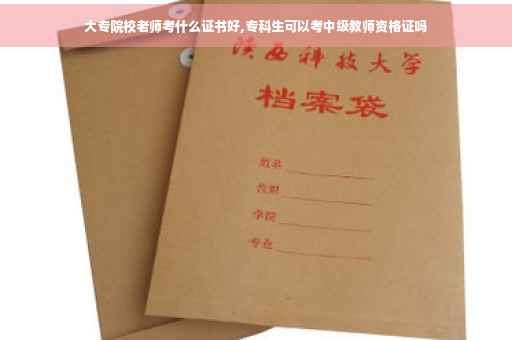 大专院校老师考什么证书好,专科生可以考中级教师资格证吗
陕西科技大学
档案袋
姓名
教职
学院
专业